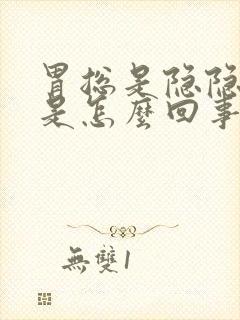 胃总是隐隐
是怎麼回事
無雙1